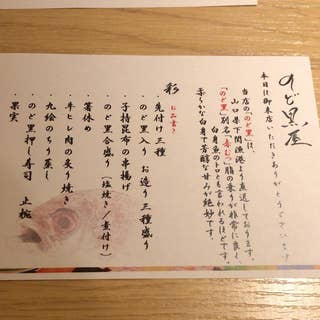 のど黒屋
本日は御来店いただきありがとうございます
当店の「のど黒」は、
山口県下関漁港より直送しております。
「のど黒」別名「赤むつ」脂の乗りが非常に良く、
白身魚のトロとも言われるほどです。
柔らかな白身で芳醇な甘みが絶妙です。
彩
お品書き
・先付け三種
・のど黒入り お造り三種盛り
・子持昆布の串揚げ
・のど黒合盛り(塩焼き/煮付け)
・箸休め
・牛ヒレ肉の炙り焼き
・九絵のちり蒸し
・のど黒押し寿司 止椀
・果実